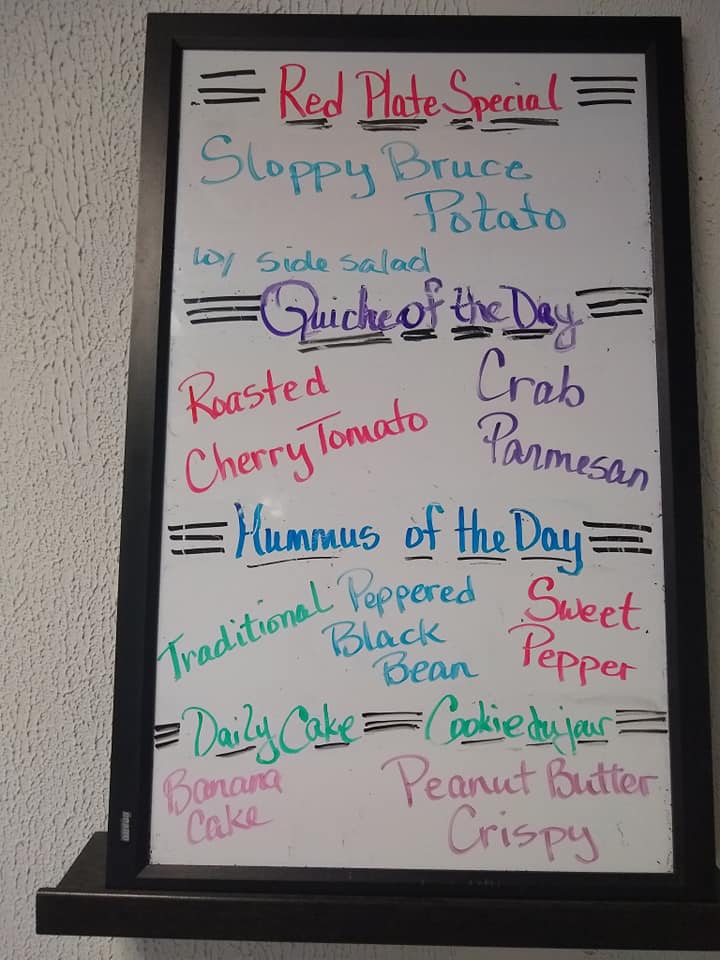 Red Plate Special
Sloppy Bruce
Potato
w/ side salad
Quiche of the Day
Roasted
Cherry Tomato
Crab
Parmesan
Hummus of the Day
Traditional
Peppered
Black
Bean
Sweet
Pepper
Daily Cake
Cookie du jour
Banana
Cake
Peanut Butter
Crispy